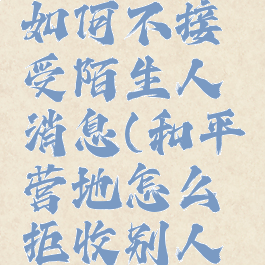 如何不接
受陌生人
消息(和平
营地怎么
拒收别人